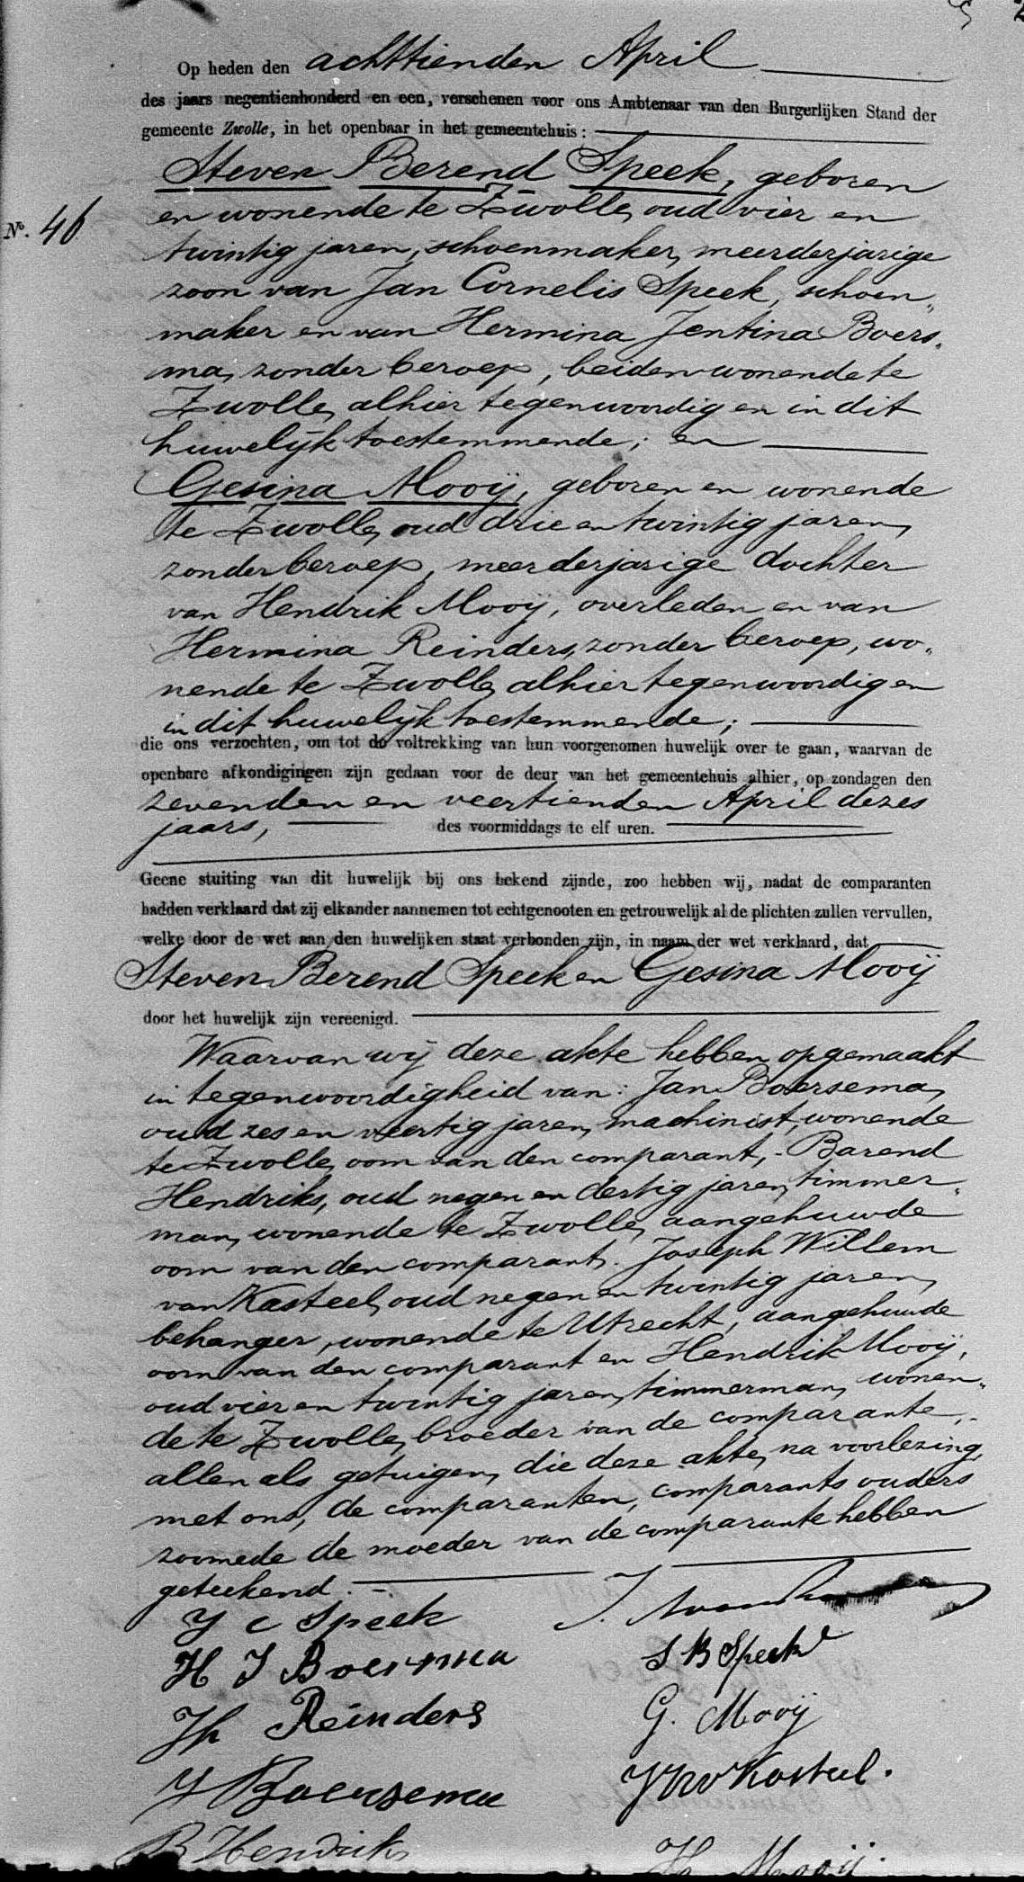 Op heden den achttienden April
des jaars negentienhonderd en een, verschenen voor ons Ambtenaar van den Burgerlijken Stand der
gemeente Zwolle, in het openbaar in het gemeentehuis:
Steven Berend Speek, geboren
No. 46
en wonende te Zwolle, oud vier en
twintig jaren, schoenmaker, meerderjarige
zoon van Jan Cornelis Speek, schoen„
maker en van Hermina Jentina Boers„
ma, zonder beroep, beiden wonende te
Zwolle, alhier tegenwoordig en in dit
huwelijk toestemmende; en
Gesina Mooij, geboren en wonende
te Zwolle, oud drie en twintig jaren,
zonder beroep, meerderjarige dochter
van Hendrik Mooij, overleden en van
Hermina Reinders, zonder beroep, wo„
nende te Zwolle, alhier tegenwoordig en
in dit huwelijk toestemmende;
die ons verzochten, om tot de voltrekking van hun voorgenomen huwelijk over te gaan, waarvan de
openbare afkondigingen zijn gedaan voor de deur van het gemeentehuis alhier, op zondagen den
zevenden en veertienden April dezes
jaars, des voormiddags te elf uren.
Geene stuiting van dit huwelijk bij ons bekend zijnde, zoo hebben wij, nadat de comparanten
hadden verklaard dat zij elkander aannemen tot echtgenooten en getrouwelijk al de plichten zullen vervullen,
welke door de wet aan den huwelijken staat verbonden zijn, in naam der wet verklaard, dat
Steven Berend Speek en Gesina Mooij
door het huwelijk zijn vereenigd.
Waarvan wij deze akte hebben opgemaakt
in tegenwoordigheid van: Jan Boersema,
oud zes en veertig jaren, machinist, wonende
te Zwolle, oom van den comparant,- Barend
Hendriks, oud negen en dertig jaren, timmer„
man, wonende te Zwolle, aangehuwde
oom van den comparant. Joseph Willem
van Kasteel, oud negen en twintig jaren,
behanger, wonende te Utrecht, aangehuwde
oom van den comparant en Hendrik Mooij,
oud vier en twintig jaren, timmerman, wonen„
de te Zwolle, broeder van de comparante,-
allen als getuigen, die deze akte, na voorlezing,
met ons, de comparanten, comparants ouders
zoomede de moeder van de comparante hebben
geteekend.-
J C Speek
H J Boersma
S B Speek
H Reinders
G. Mooij
J Boersema
J W v Kasteel.
B Hendriks
H. Mooij.